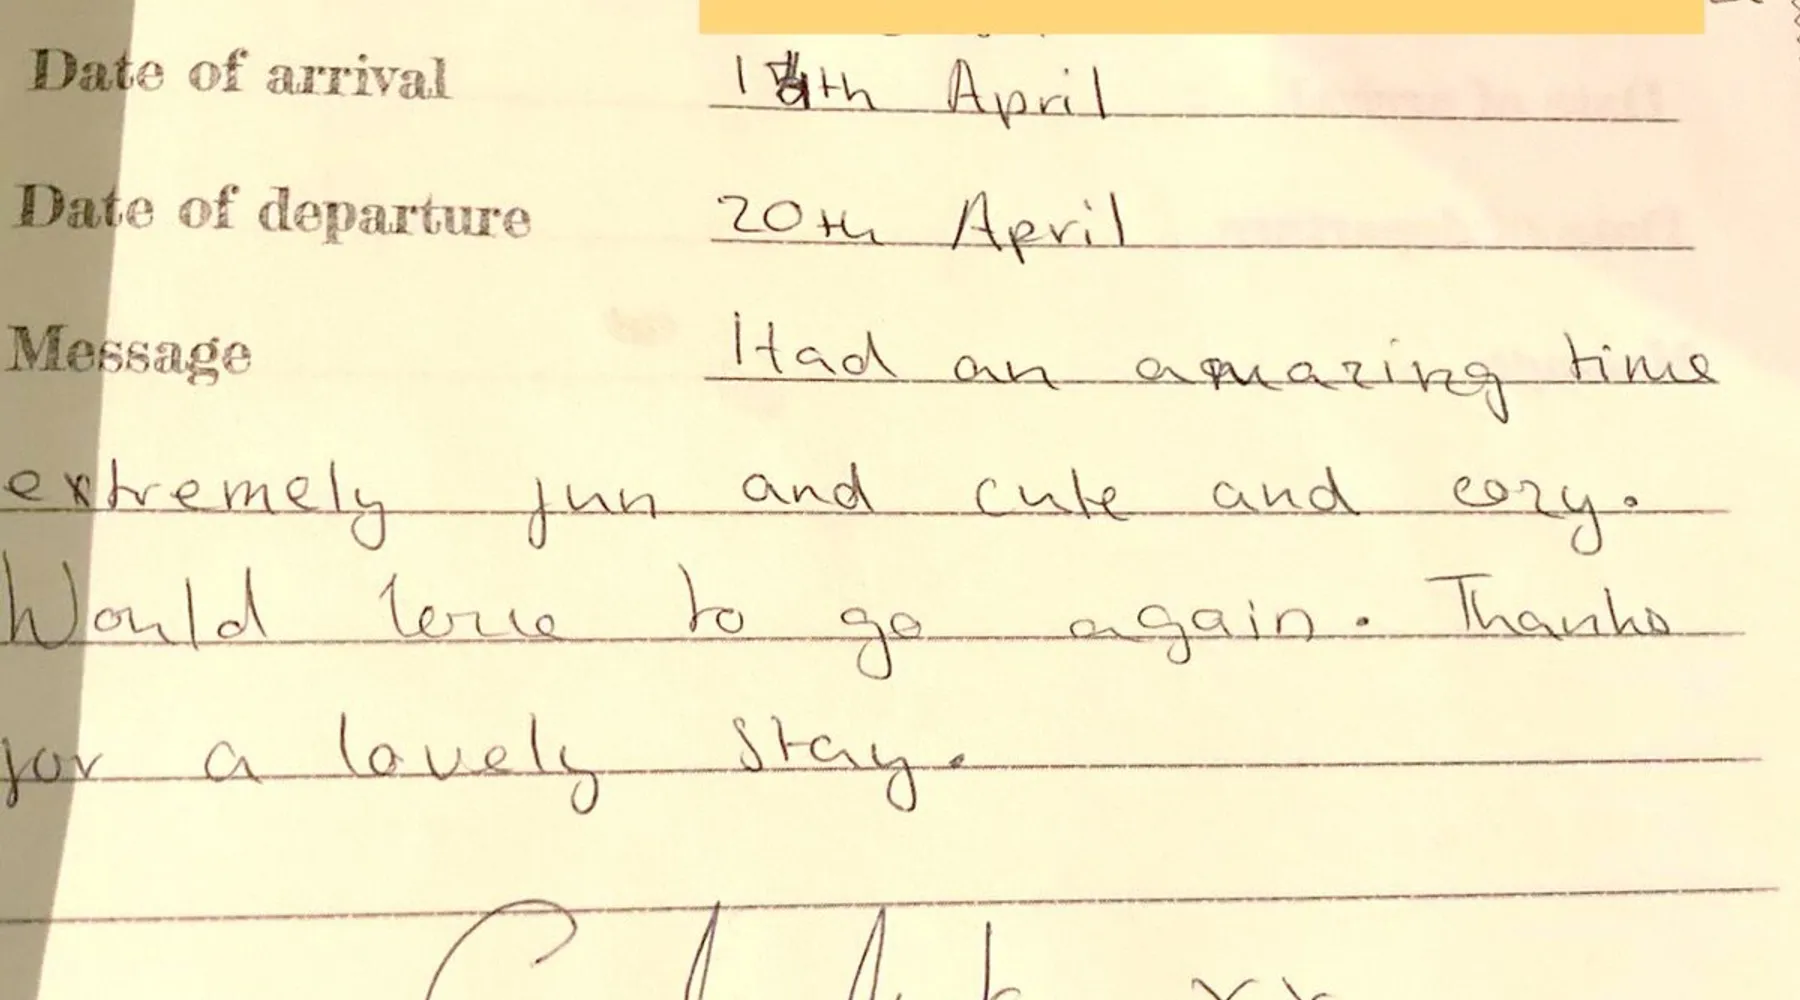 Date of arrival April
Date of departure 20th April
Message Had an amazing time
extremely fun and cute and cozy.
Would love to go again. Thanks
for a lovely stay.
xx